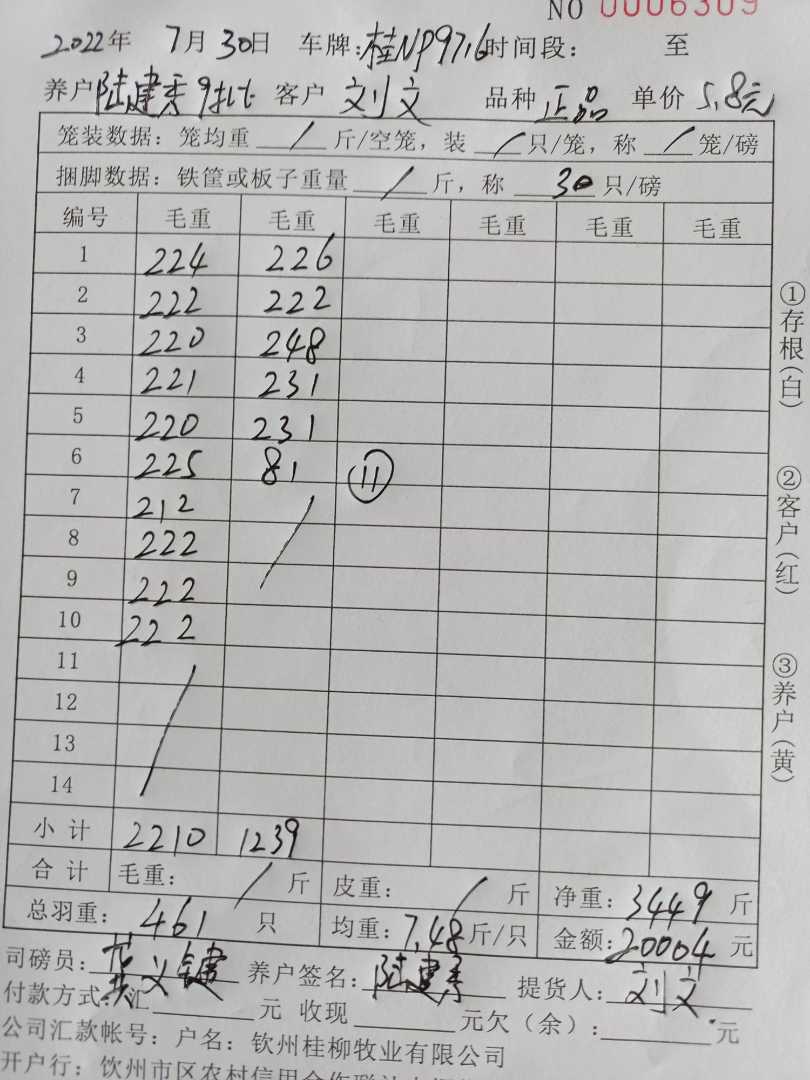 NO 0006309
2022年 7月30日 车牌:桂NP9716 时间段: 至
养户 陆建秀 9批 客户 刘文 品种 正品 单价 5.8元
笼装数据: 笼均重 / 斤/空笼, 装 / 只/笼, 称 / 笼/磅
捆脚数据: 铁筐或板子重量 / 斤, 称 30 只/磅
编号 毛重 毛重 毛重 毛重 毛重 毛重
1 224 226
2 222 222
3 220 248
4 221 231
5 220 231
6 225 81 ⑪
7 212 /
8 222
9 222
10 222
11 /
12
13
14
小计 2210 1239
合计 毛重: / 斤 皮重: / 斤 净重: 3449 斤
总羽重: 461 只 均重: 7.48 斤/只 金额: 20004 元
司磅员: 义键 养户签名: 陆建秀 提货人: 刘文
付款方式: 汇 元 收现 元欠(余): 元
公司汇款帐号: 户名: 钦州桂柳牧业有限公司
开户行: 钦州市区农村信用合作联社
①存根(白)
②客户(红)
③养户(黄)